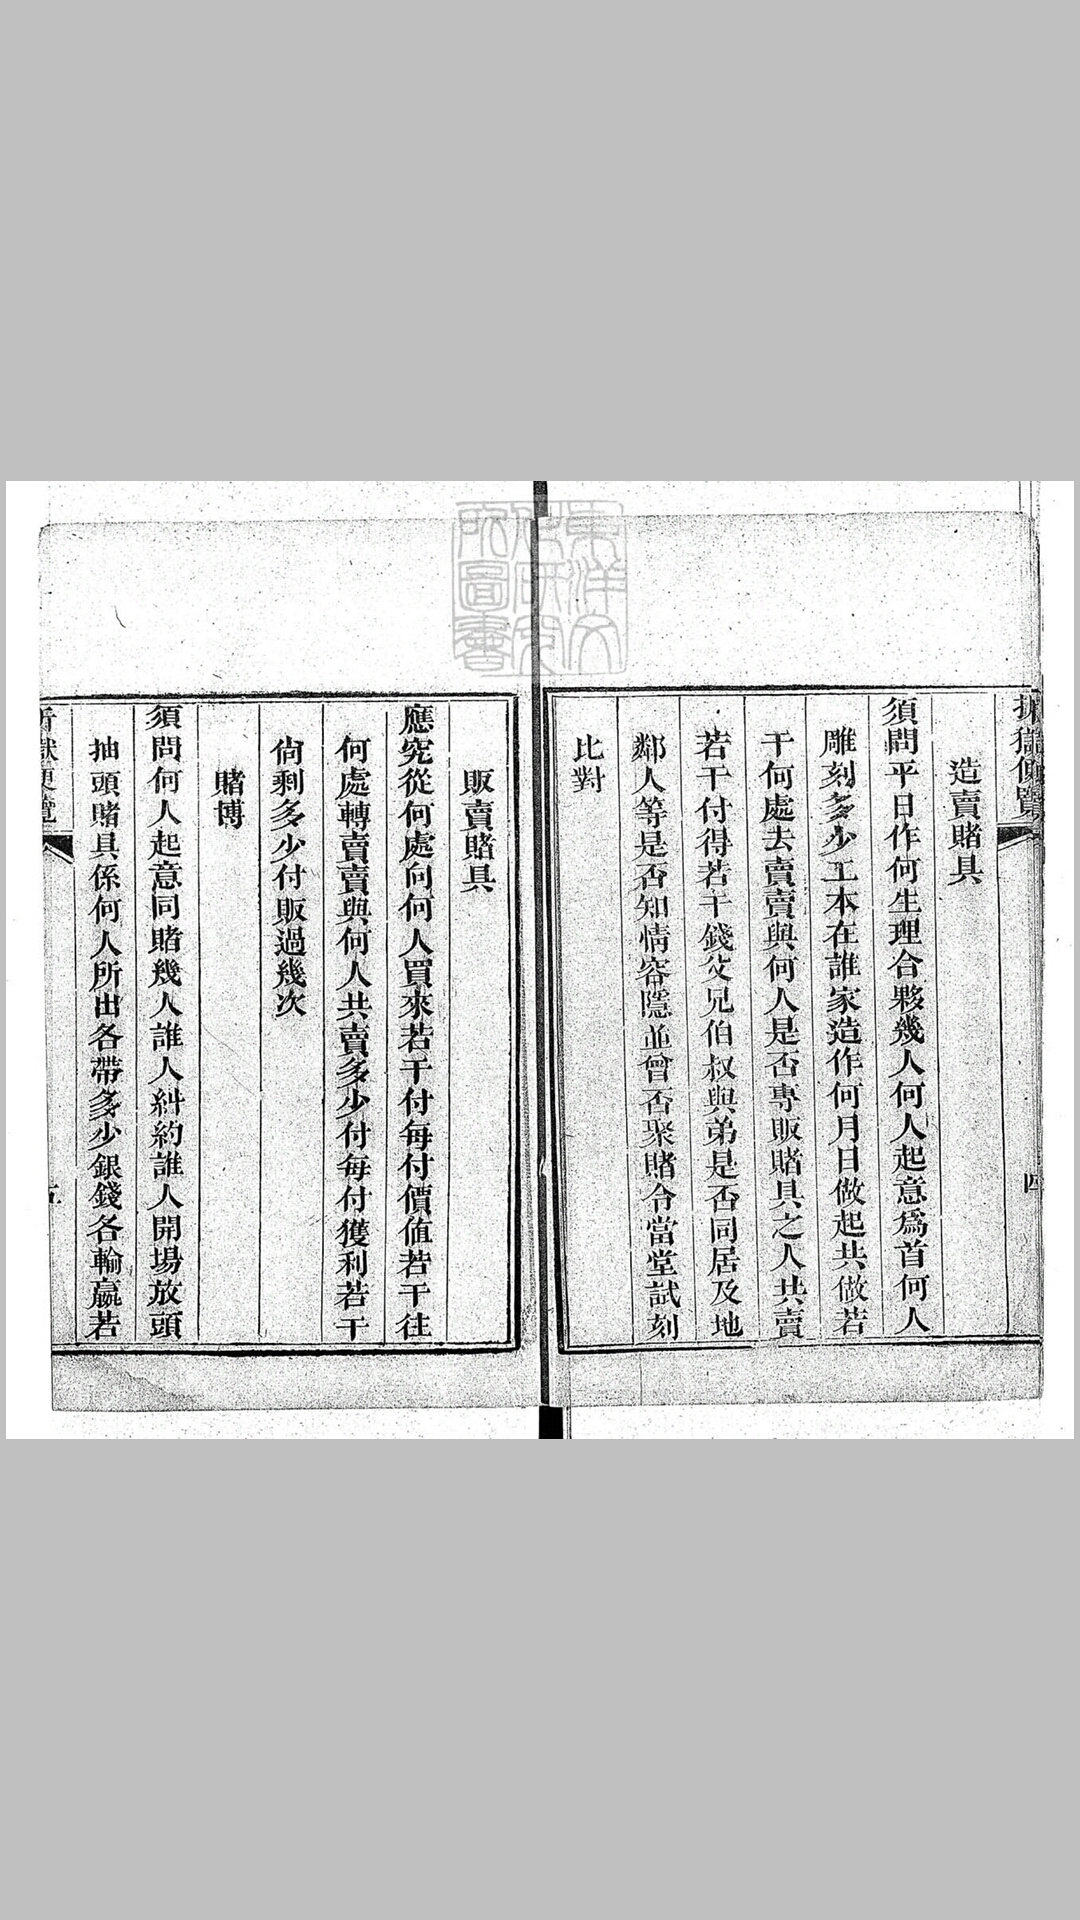 折獄便覽
四
造賣賭具
須問平日作何生理合夥幾人何人起意爲首何人
雕刻多少工本在誰家造作何月日做起共做若
干何處去賣賣與何人是否專販賭具之人共賣
若干付得若干錢父兄伯叔與弟是否同居及地
鄰人等是否知情容隱並曾否聚賭令當堂試刻
比對
販賣賭具
應究從何處向何人買來若干付每付價値若干往
何處轉賣賣與何人共賣多少付每付獲利若干
尙剩多少付販過幾次
賭博
須問何人起意同賭幾人誰人糾約誰人開場放頭
抽頭賭具係何人所出各帶多少銀錢各輸贏若
折獄便覽
五
東洋文
化研究
所圖書